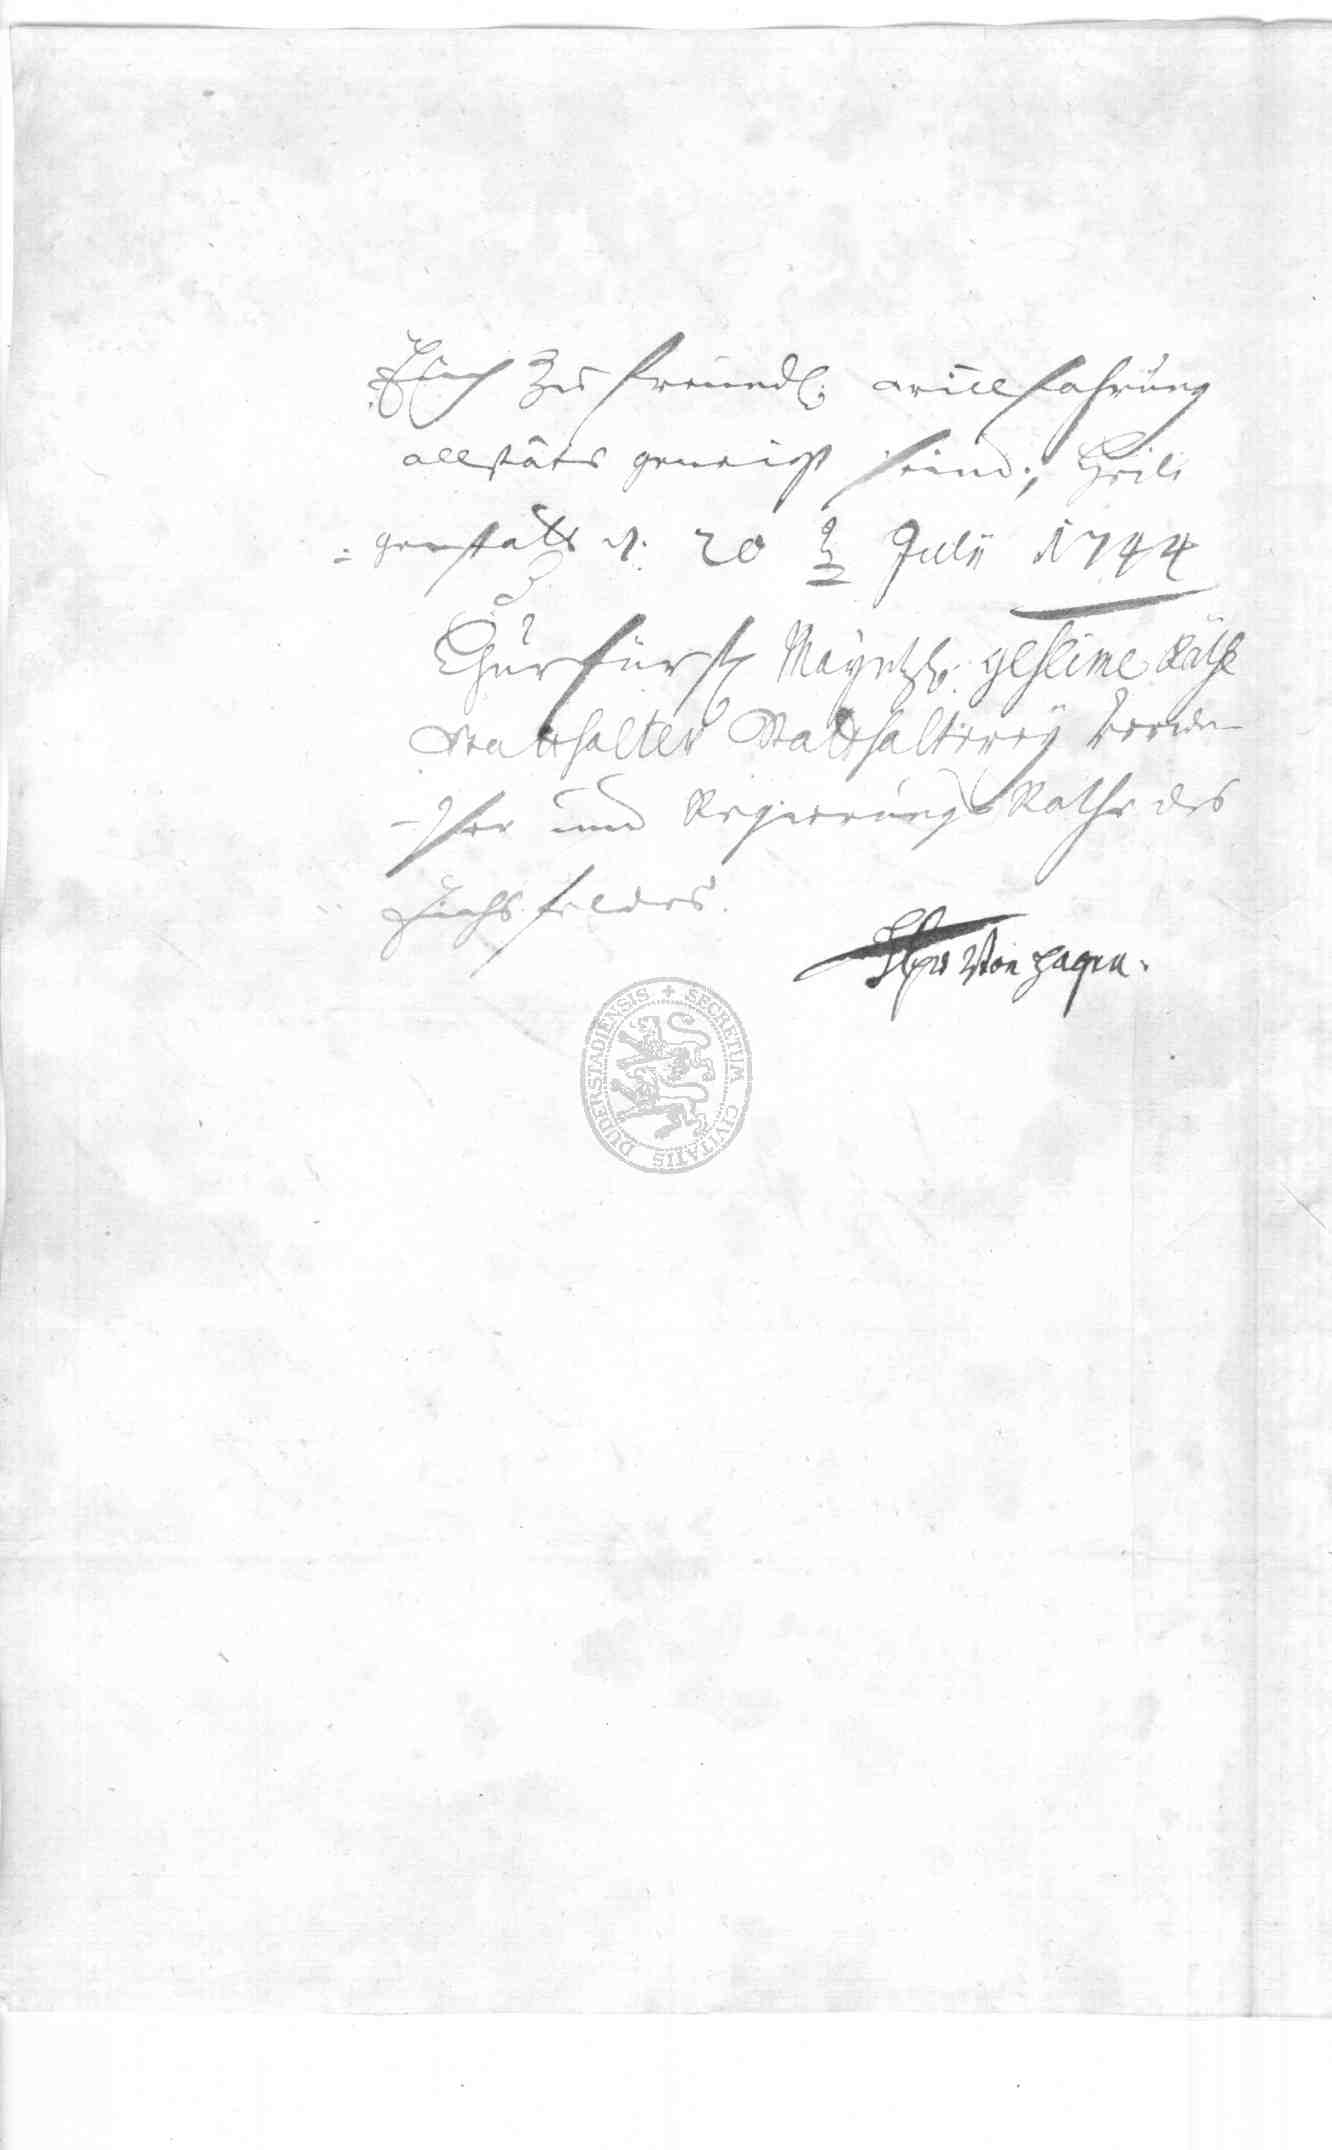 Euch zu freundl. willfahrung
allstäts geneigt seind; Heili
= genstatt d. 20 July 1744
Churfürstl Mayntzl. geheime Räthe
Statthalter Statthalterey Verwe-
-ser und Regierungs Räthe des
Eichsfeldes.
von Hagen.
SECRETUM CIVITATIS DUDERSTADIENSIS